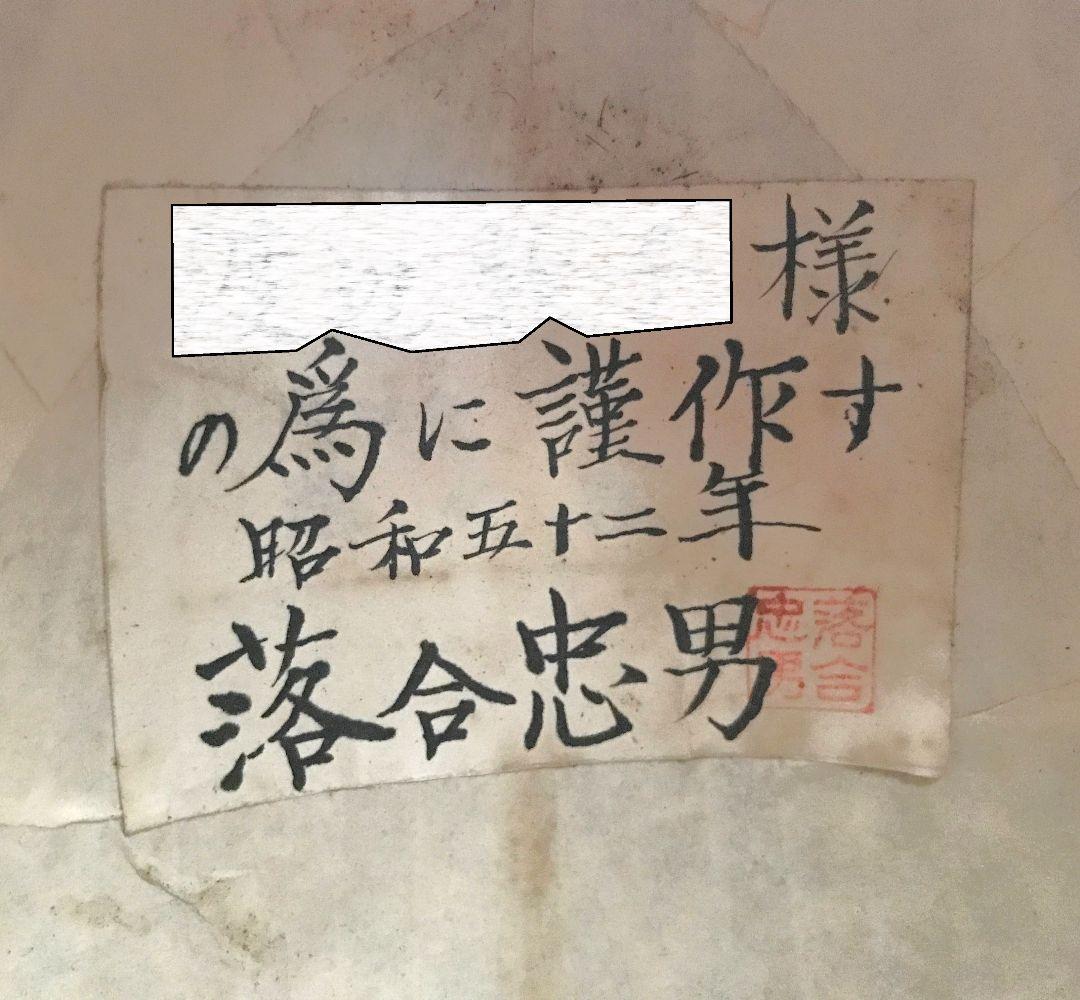 様
の爲に謹作す
昭和五十二年
落合忠男
落合
忠男